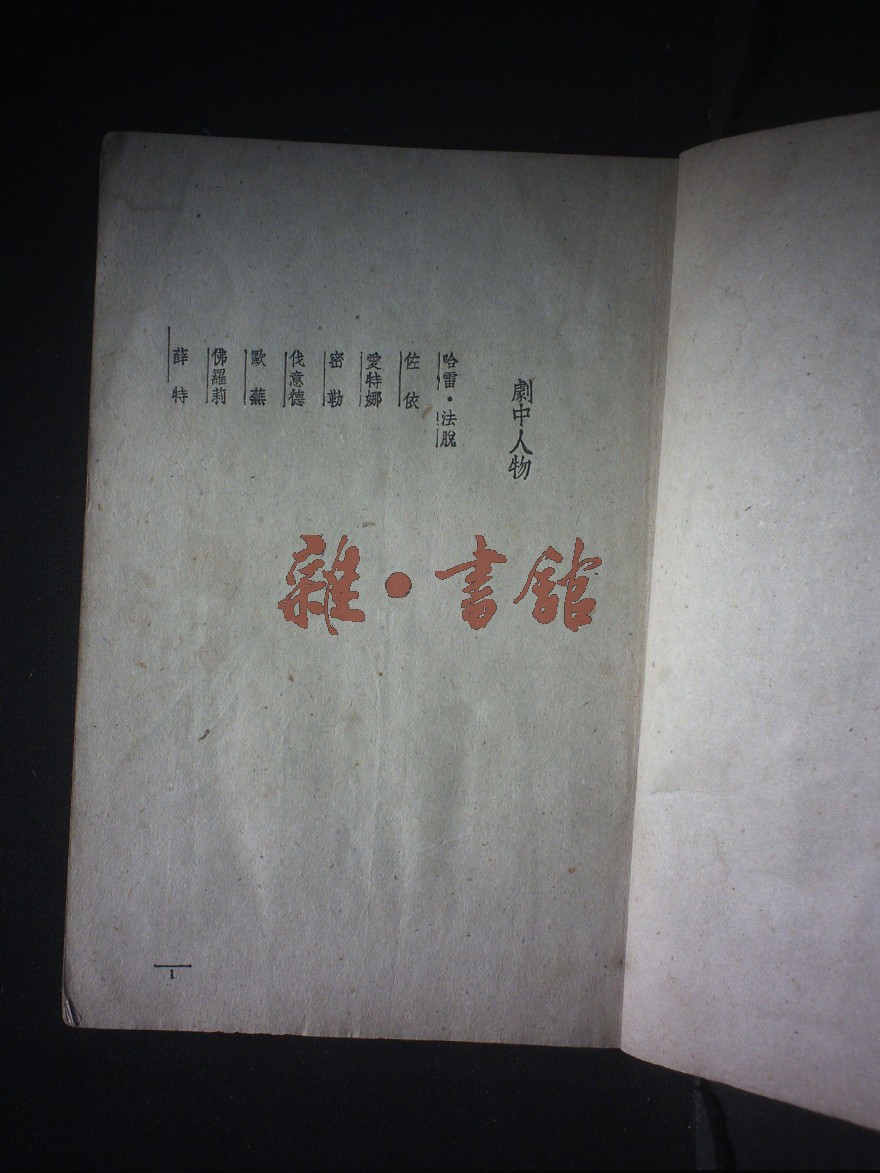 劇中人物
哈雷·法脫
佐依
愛特娜
密勒
伐意德
歐蕪
佛羅莉
薛特
雜·書館
1